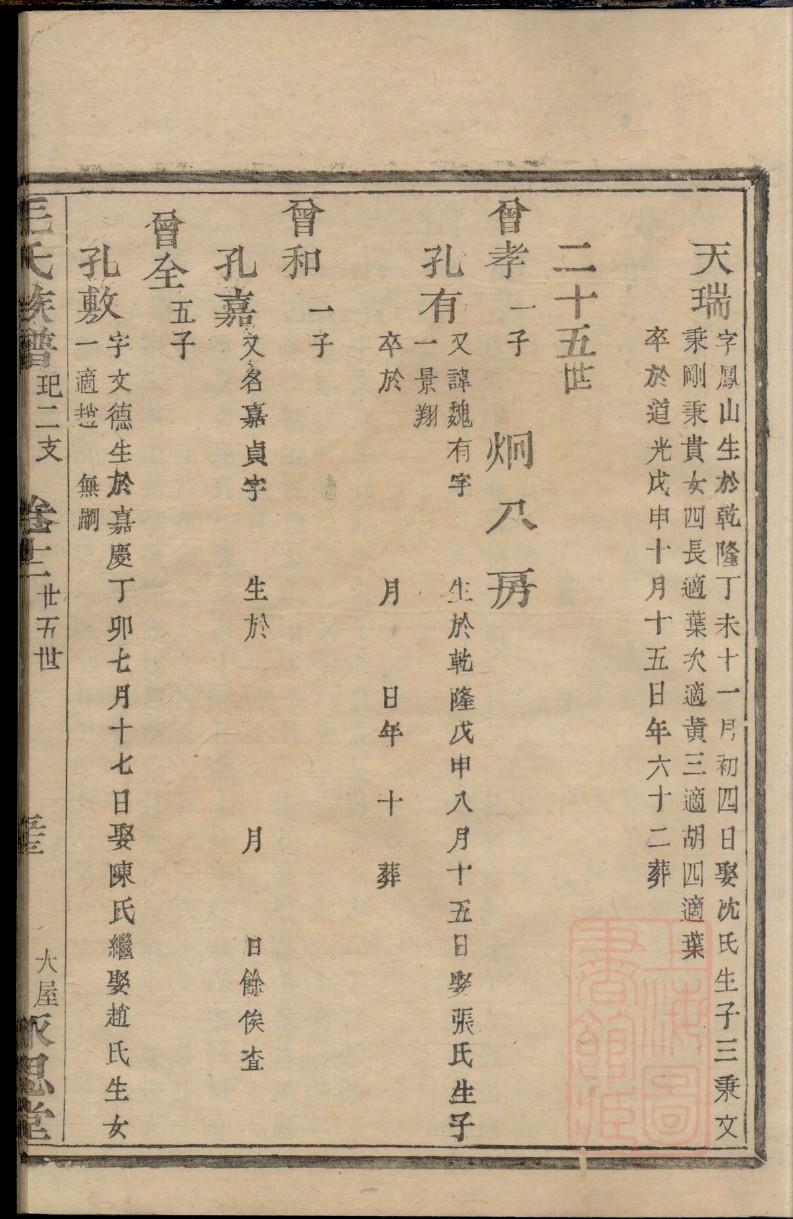 天瑞 字鳳山生於乾隆丁未十一月初四日娶沈氏生子三秉文
秉剛秉貴女四長適葉次適黄三適胡四適葉
卒於道光戊申十月十五日年六十二葬
二十五世
曾孝 一子 炯八房
孔有 又諱魏有字 生於乾隆戊申八月十五日娶張氏生子
一景翔
卒於 月 日年 十 葬
曾和 一子
孔嘉 又名嘉貞字 生於 月 日餘俟查
曾全 五子
孔敷 字文德生於嘉慶丁卯七月十七日娶陳氏繼娶趙氏生女
一適趙 無嗣
毛氏族譜 玘二支 卷十二 廿五世 大屋 永思堂
上海圖
書館藏